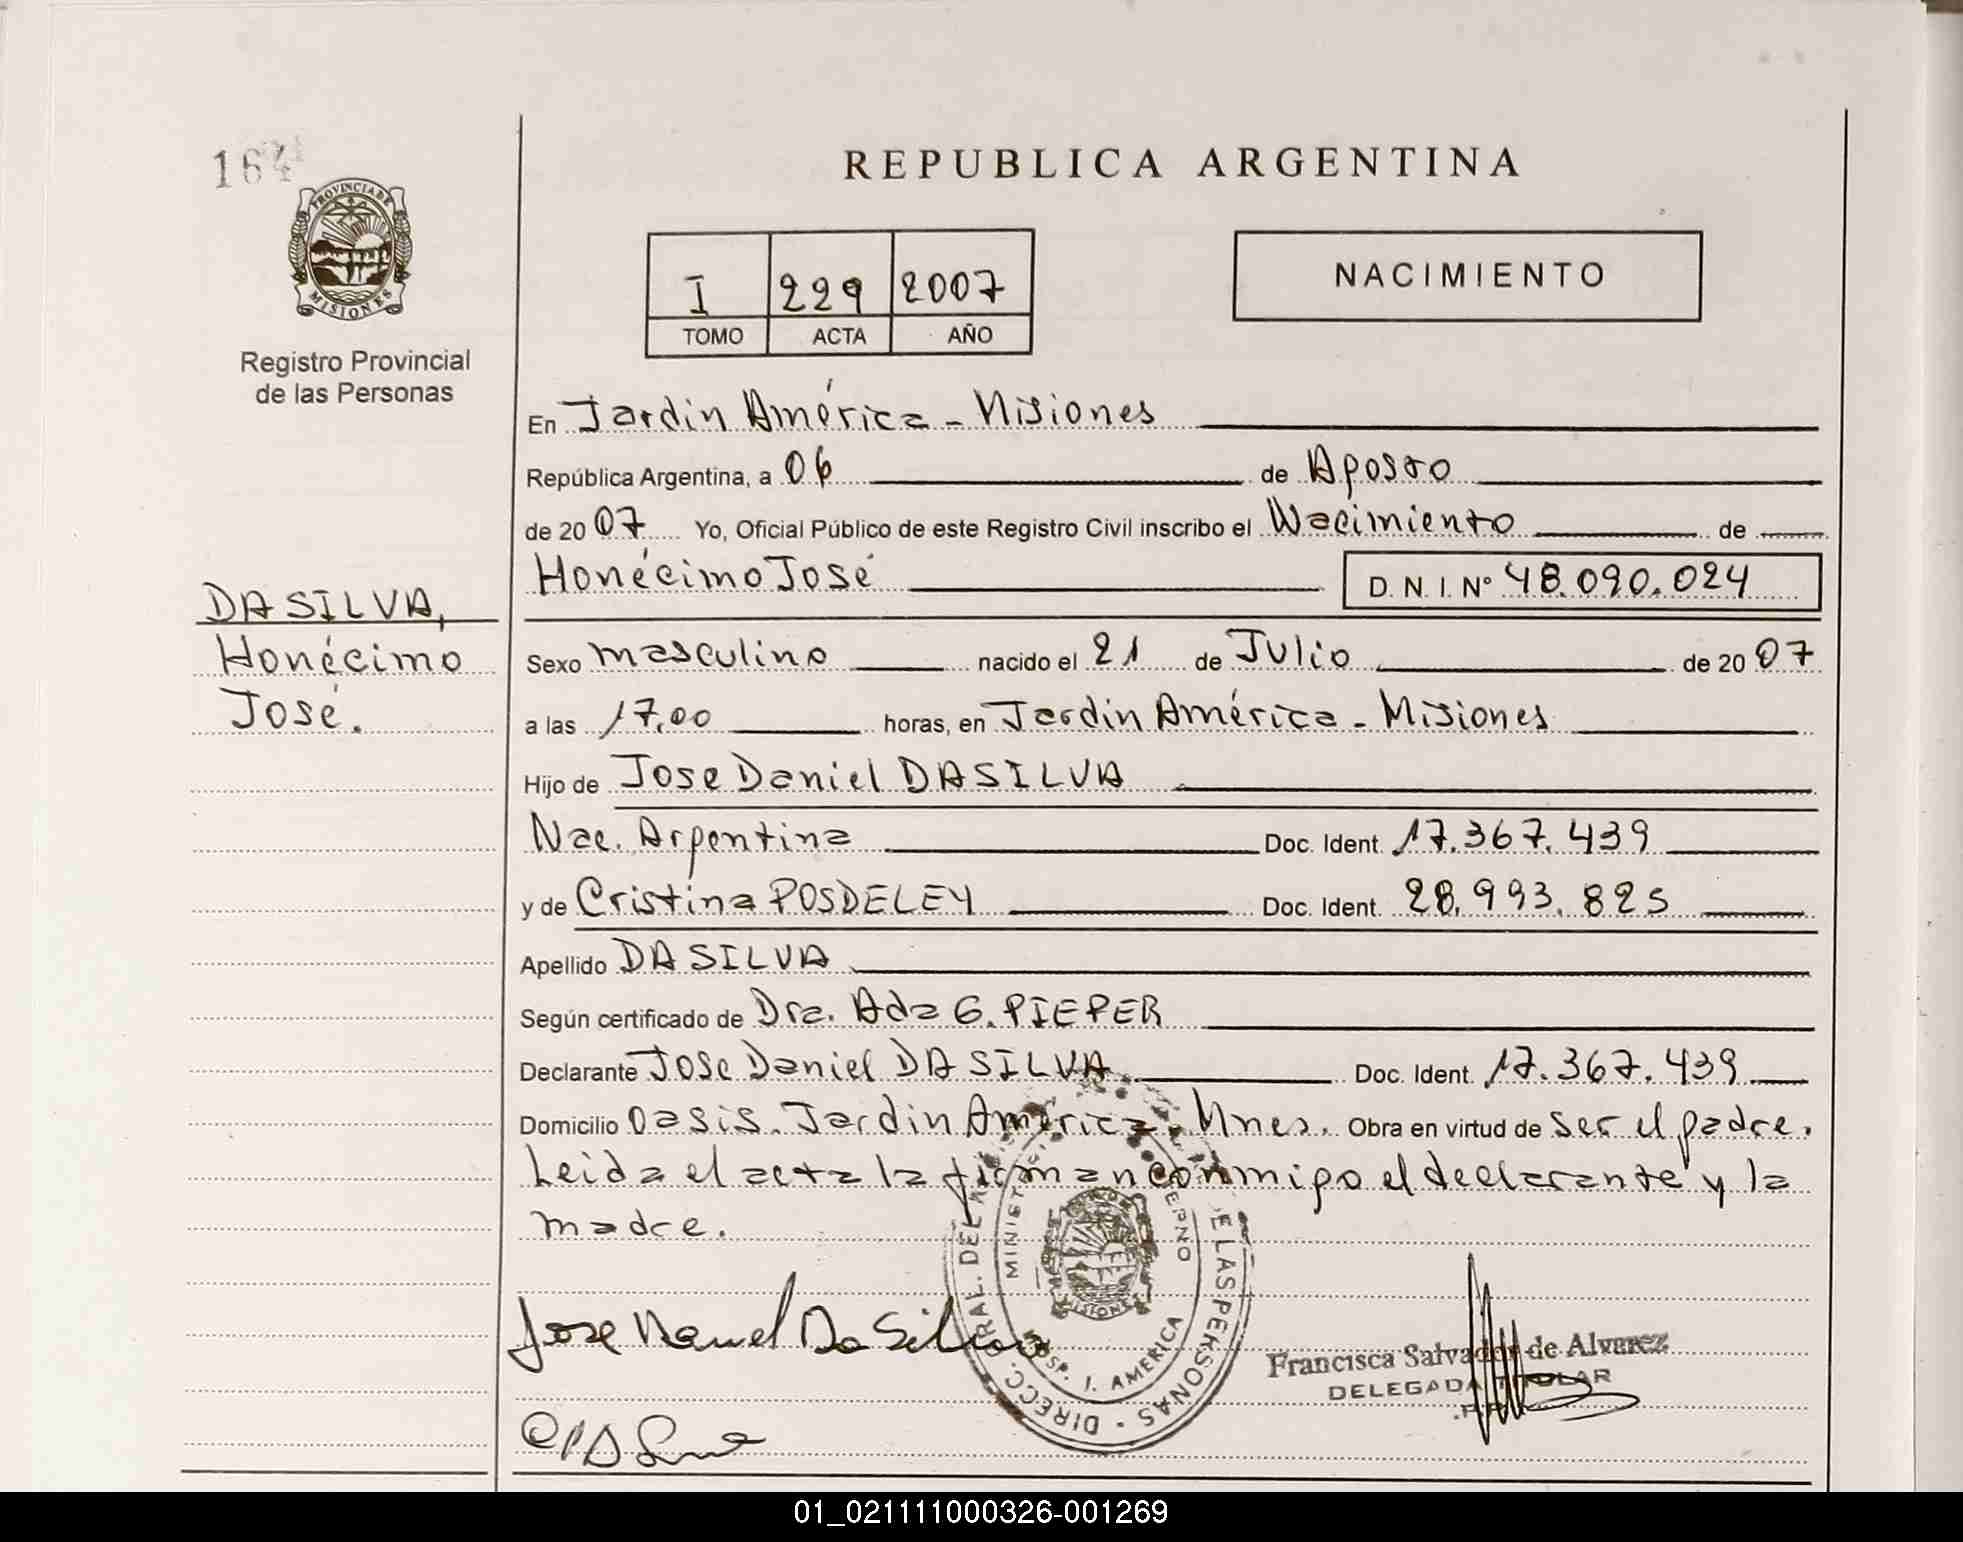 164
PROVINCIA DE
MISIONES
Registro Provincial
de las Personas
DA SILVA,
Honécimo
José.
REPUBLICA ARGENTINA
I 229 2007
TOMO ACTA AÑO
NACIMIENTO
En Jardín América - Misiones
República Argentina, a 06 de Agosto
de 2007 Yo, Oficial Público de este Registro Civil inscribo el Nacimiento de
Honécimo José D. N. I. Nº 48.090.024
Sexo masculino nacido el 21 de Julio de 2007
a las 17,00 horas, en Jardín América - Misiones
Hijo de Jose Daniel DA SILVA
Nac. Argentina Doc. Ident. 17.367.439
y de Cristina POSDELEY Doc. Ident. 28.993.825
Apellido DA SILVA
Según certificado de Dra. Ada G. PIEPER
Declarante Jose Daniel DA SILVA Doc. Ident. 17.367.439
Domicilio Oasis. Jardín América. Mnes. Obra en virtud de ser el padre.
Leida el acta la firman conmigo el declarante y la
madre.
DIRECC. GRAL. DEL DE LAS PERSONAS
MINIST
HOSP. J. AMERICA
MISIONES
Jose Daniel Da Silva
Francisca Salvador de Alvarez
DELEGADA TITULAR
01_021111000326-001269